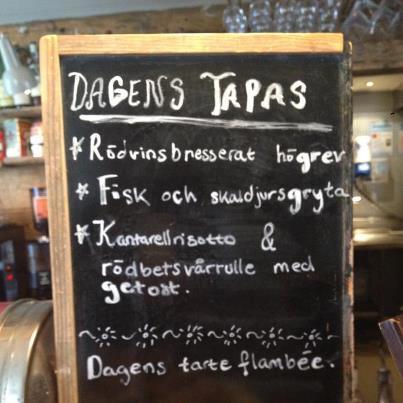 DAGENS TAPAS
* Rödvinsbresserat högrev
* Fisk och skaldjursgryta
* Kantarellrisotto &
rödbetsvårrulle med
getost.
Dagens tarte flambée.